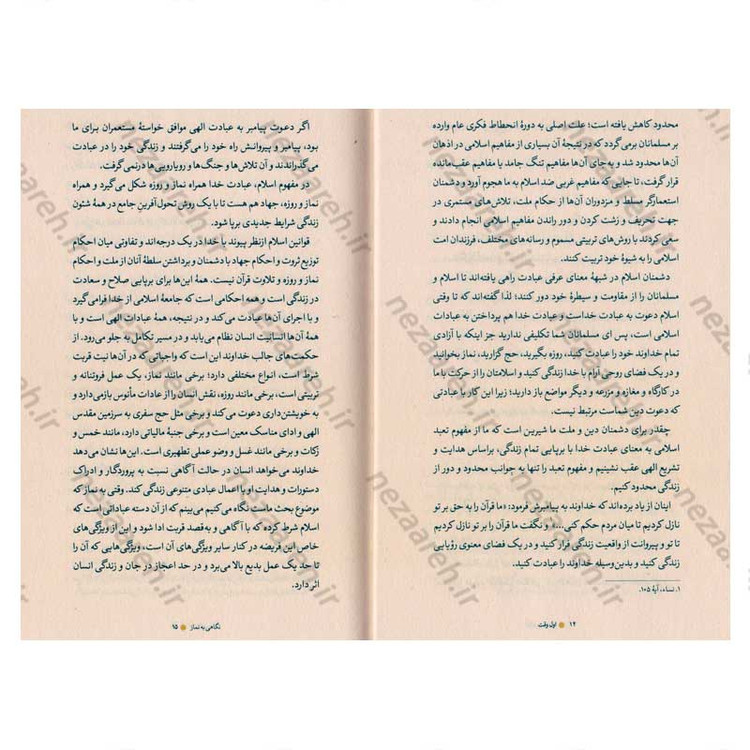 محدود کاهش یافته است؛ علت اصلی به دورهٔ انحطاط فکری عام وارده
بر مسلمانان برمی‌گردد که در نتیجهٔ آن بسیاری از مفاهیم اسلامی در اذهان
آن‌ها محدود شد و به جای آن‌ها مفاهیم تنگ جامد یا مفاهیم عقب‌مانده
قرار گرفت، تا جایی که مفاهیم غربی ضد اسلام به ما هجوم آورد و دشمنان
استعمارگر مسلط و مزدوران آن‌ها از حکام ملت، تلاش‌های مستمری در
جهت تحریف و زشت کردن و دور راندن مفاهیم اسلامی انجام دادند و
سعی کردند با روش‌های تربیتی مسموم و رسانه‌های مختلف، فرزندان امت
اسلامی را به شیوهٔ خود تربیت کنند.
دشمنان اسلام در شبههٔ معنای عرفی عبادت راهی یافته‌اند تا اسلام و
مسلمانان را از مقاومت و سیطرهٔ خود دور کنند؛ لذا گفته‌اند که تا وقتی
اسلام دعوت به عبادت خداست و عبادت خدا هم پرداختن به عبادات
اسلامی است، پس ای مسلمانان شما تکلیفی ندارید جز اینکه با آزادی
تمام خداوند خود را عبادت کنید، روزه بگیرید، حج گزارید، نماز بخوانید
و در یک فضای روحی آرام با خدا زندگی کنید و اسلامتان را از حرکت با ما
در کارگاه و مغازه و مزرعه و دیگر مواضع باز دارید؛ زیرا این کار با عبادتی
که دعوت دین شماست مرتبط نیست.
چقدر برای دشمنان دین و ملت ما شیرین است که ما از مفهوم تعبد
اسلامی به معنای عبادت خدا با برپایی تمام زندگی، براساس هدایت و
تشریع الهی عقب نشینیم و مفهوم تعبد را تنها به جوانب محدود و دور از
زندگی محدود کنیم.
اینان از یاد برده‌اند که خداوند به پیامبرش فرمود: «ما قرآن را به حق بر تو
نازل کردیم تا میان مردم حکم کنی...» و نگفت ما قرآن را بر تو نازل کردیم
تا تو و پیروانت از واقعیت زندگی فرار کنید و در یک فضای معنوی رؤیایی
زندگی کنید و بدین‌وسیله خداوند را عبادت کنید.
۱. نساء، آیهٔ ۱۰۵.
۱۴ اول وقت
اگر دعوت پیامبر به عبادت الهی موافق خواستهٔ مستعمران برای ما
بود، پیامبر و پیروانش راه خود را می‌گرفتند و زندگی خود را در عبادت
می‌گذراندند و آن تلاش‌ها و جنگ‌ها و رویارویی‌ها درنمی‌گرفت.
در مفهوم اسلام، عبادت خدا همراه نماز و روزه شکل می‌گیرد و همراه
نماز و روزه، جهاد هم هست تا با یک روش تحول‌آفرین جامع در همهٔ شئون
زندگی شرایط جدیدی برپا شود.
قوانین اسلام ازنظر پیوند با خدا در یک درجه‌اند و تفاوتی میان احکام
توزیع ثروت و احکام جهاد با دشمنان و برداشتن سلطهٔ آنان از ملت و احکام
نماز و روزه و تلاوت قرآن نیست. همهٔ این‌ها برای برپایی صلاح و سعادت
در زندگی است و همه احکامی است که جامعهٔ اسلامی از خدا فرامی‌گیرد
و با اجرای آن‌ها عبادت می‌کند و در نتیجه، همهٔ عبادات الهی است و با
همهٔ آن‌ها انسانیت انسان نظام می‌یابد و در مسیر تکامل به جلو می‌رود. از
حکمت‌های جالب خداوند این است که واجباتی که در آن‌ها نیت قربت
شرط است، انواع مختلفی دارد؛ برخی مانند نماز، یک عمل فروتنانه و
تربیتی است، برخی مانند روزه، نقش انسان را از عادات مأنوس بازمی‌دارد و
به خویشتن‌داری دعوت می‌کند و برخی مثل حج سفری به سرزمین مقدس
الهی و ادای مناسک معین است و برخی جنبهٔ مالیاتی دارد، مانند خمس و
زکات و برخی مانند غسل و وضو عملی تطهیری است. این‌ها نشان می‌دهد
خداوند می‌خواهد انسان در حالت آگاهی نسبت به پروردگار و ادراک
دستورات و هدایت او با اعمال عبادی متنوعی زندگی کند. وقتی به نماز که
موضوع بحث ماست نگاه می‌کنیم می‌بینم که از آن دسته عباداتی است که
اسلام شرط کرده که با آگاهی و به قصد قربت ادا شود و این از ویژگی‌های
خاص این فریضه در کنار سایر ویژگی‌های آن است، ویژگی‌هایی که آن را
تا حد یک عمل بدیع بالا می‌برد و در حد اعجاز در جان و زندگی انسان
اثر دارد.
نگاهی به نماز ۱۵
nezaareh.ir